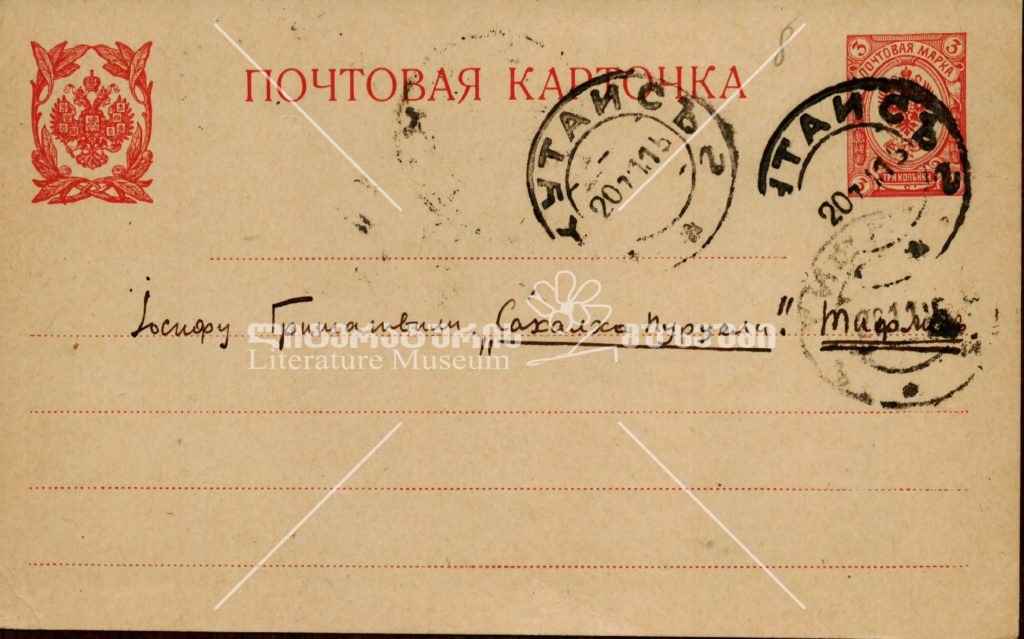 ПОЧТОВАЯ КАРТОЧКА
8
3 ПОЧТОВАЯ МАРКА 3
ТРИ КОПѢЙКИ
КУТАИСЪ 2
УТАИСЪ 2
Іосифу Гришашвили „Сахалхо пурцели." Тифлис
ლიტერატურის მუზეუმი
Literature Museum